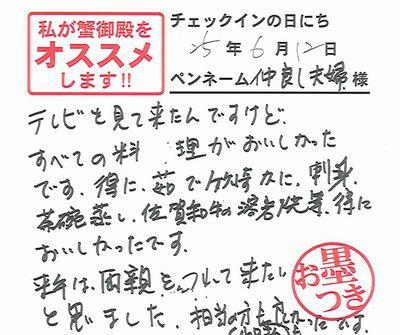 私が蟹御殿を
オススメ
します!!
チェックインの日にち
25年6月12日
ペンネーム仲良し夫婦様
テレビを見て来たんですけど、
すべての料理がおいしかった
です。得に、茹で竹崎カに、刺身、
茶碗蒸し、佐賀和牛の溶岩焼等、得に
おいしかったです。
来年は、両親をつれて来たい
と思いました。担当の方も良かったです。
お墨つき